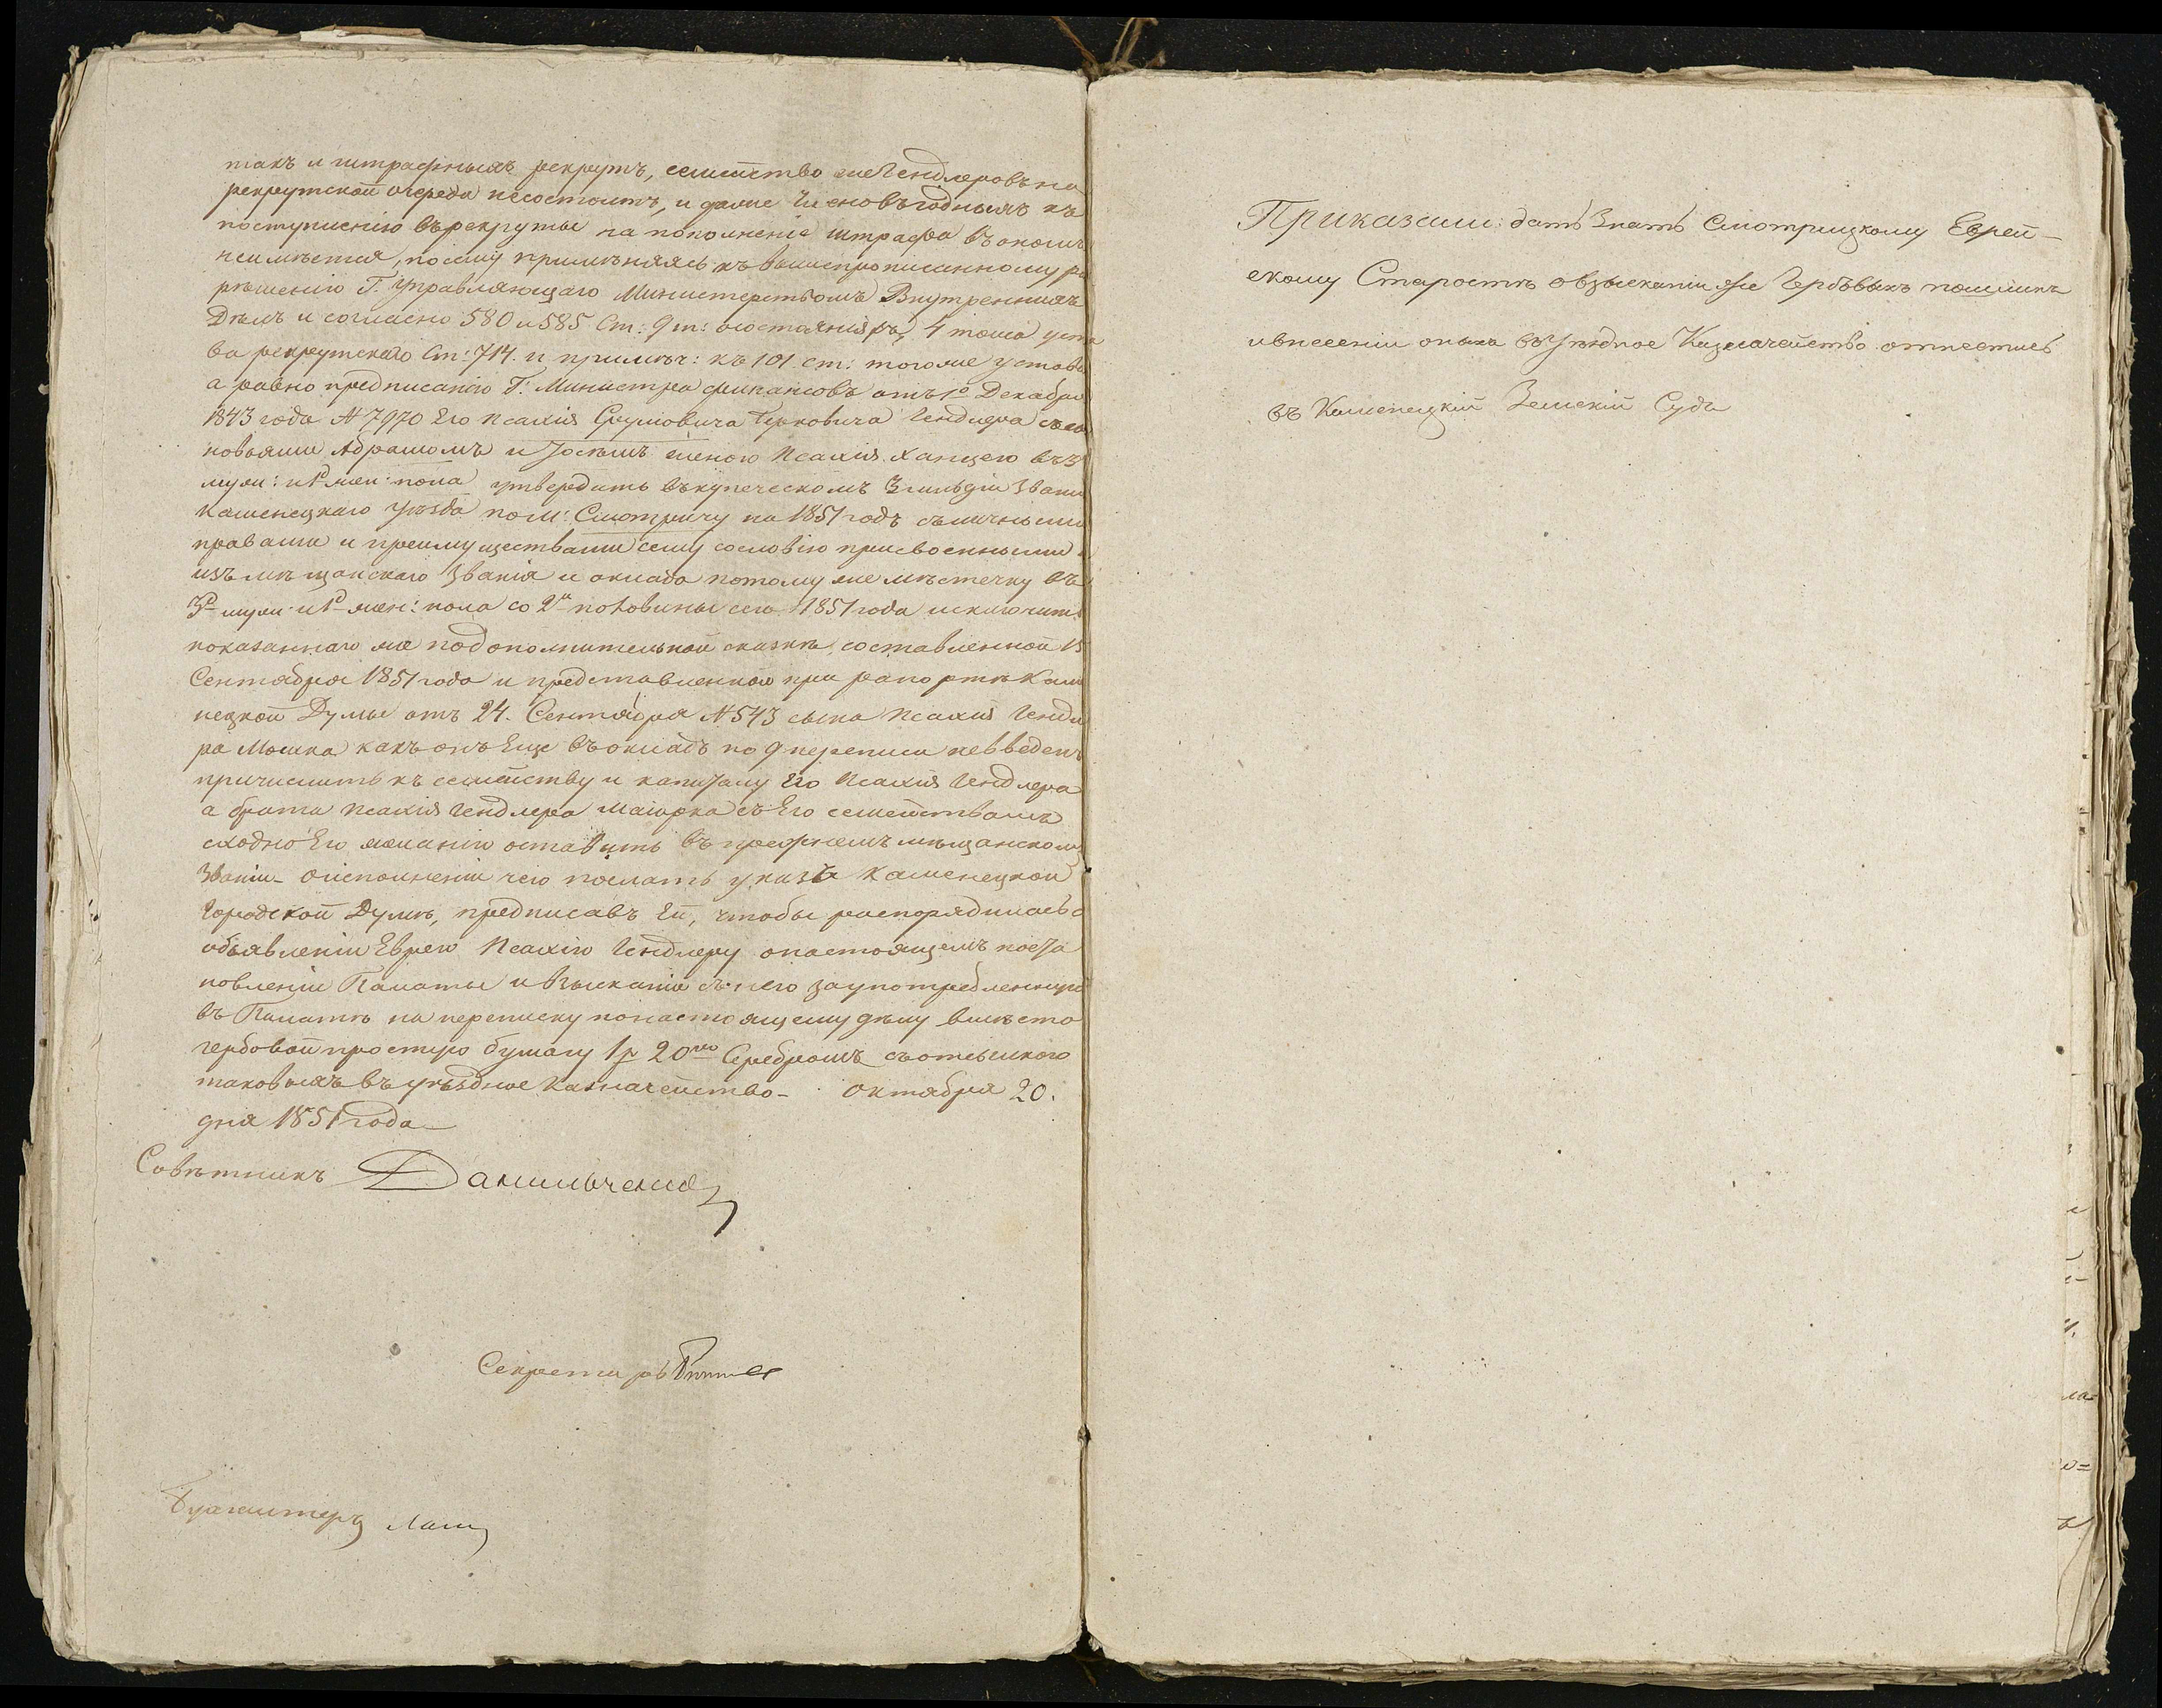 такъ и штрафныхъ рекрутъ, семейство же Гендлеровъ на
рекрутской очереди несостоитъ, и даже членовъ годныхъ къ
поступленію въ рекруты на пополненіе штрафа въ ономъ
неимѣется, посему примѣняясь къ вышепрописанному ра
рѣшенію Г. Управляющаго Министерствомъ Внутреннихъ
Дѣлъ и согласно 580 и 585 Ст: 9 т: о состояніяхъ, 4 тома уста
ва рекрутскаго Ст: 714. и примѣч: къ 101 ст: тогоже устава
а равно предписанію Г. Министра финансовъ отъ 10 Декабря
1843 года № 7970 Его Псахія Сруловича Берковича Гендлера съ сы
новьями Абрамомъ и Іосѣмъ женою Псахія Ханцею въ 3
муж: и 1й жен: пола утвердить въ купеческомъ 3 гильдіи Званіи
Каменецкаго Уѣзда по м: Смотричу на 1851 годъ съ личными
правами и преимуществами сему сословію присвоенными
изъ мѣщанскаго Званія и оклада потому же мѣстечку въ
3й муж: и 1й жен: пола со 2й половины сего 1851 года исключить
показаннаго же по дополнительной сказкѣ, составленной 15
Сентября 1851 года и представленной при рапортѣ Каме
нецкой Думы отъ 24. Сентября № 543 сына Псахія Гендле
ра Мошка какъ онъ Еще въ окладъ по 9 переписи невведенъ
причислить къ семейству и капиталу Его Псахія Гендлера
а брата Псахія Гендлера Маіорка съ Его семействомъ
сходно Его желанію оставить въ прежнемъ мѣщанскомъ
Званіи - о исполненіи чего послать указъ Каменецкой
Городской Думѣ, предписавъ Ей, чтобы распорядилась о
объявленіи Еврею Псахію Гендлеру о настоящемъ поста
новленіи Палаты и Взысканіи съ него за употребленную
въ Палатѣ на переписку по настоящему дѣлу вмѣсто
гербовой простую бумагу 1 р 20 ко Серебромъ съ отсылкою
таковыхъ въ уѣздное Казначейство - Октября 20.
дня 1851 года
Совѣтникъ Данильченко
Секретарь
Бухгалтеръ
Приказали: дать Знать Смотрицкому Еврей-
скому Старостѣ о взысканіи же Гербовыхъ пошлинъ
и внесеніи оныхъ въ Уѣздное Казначейство отнестись
въ Каменецкій Земскій Судъ